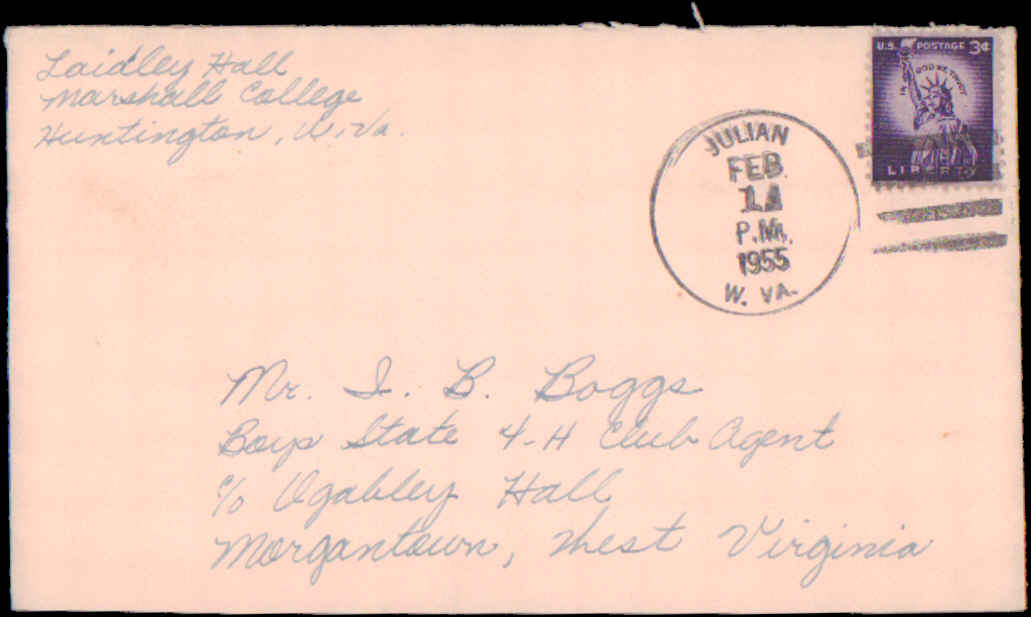 Laidley Hall
Marshall College
Huntington, W. Va.
U.S. POSTAGE 3¢
IN GOD WE TRUST
LIBERTY
JULIAN
FEB.
14
P.M.
1955
W. VA.
Mr. I. B. Boggs
Boys State 4-H Club Agent
c/o Ogabley Hall
Morgantown, West Virginia